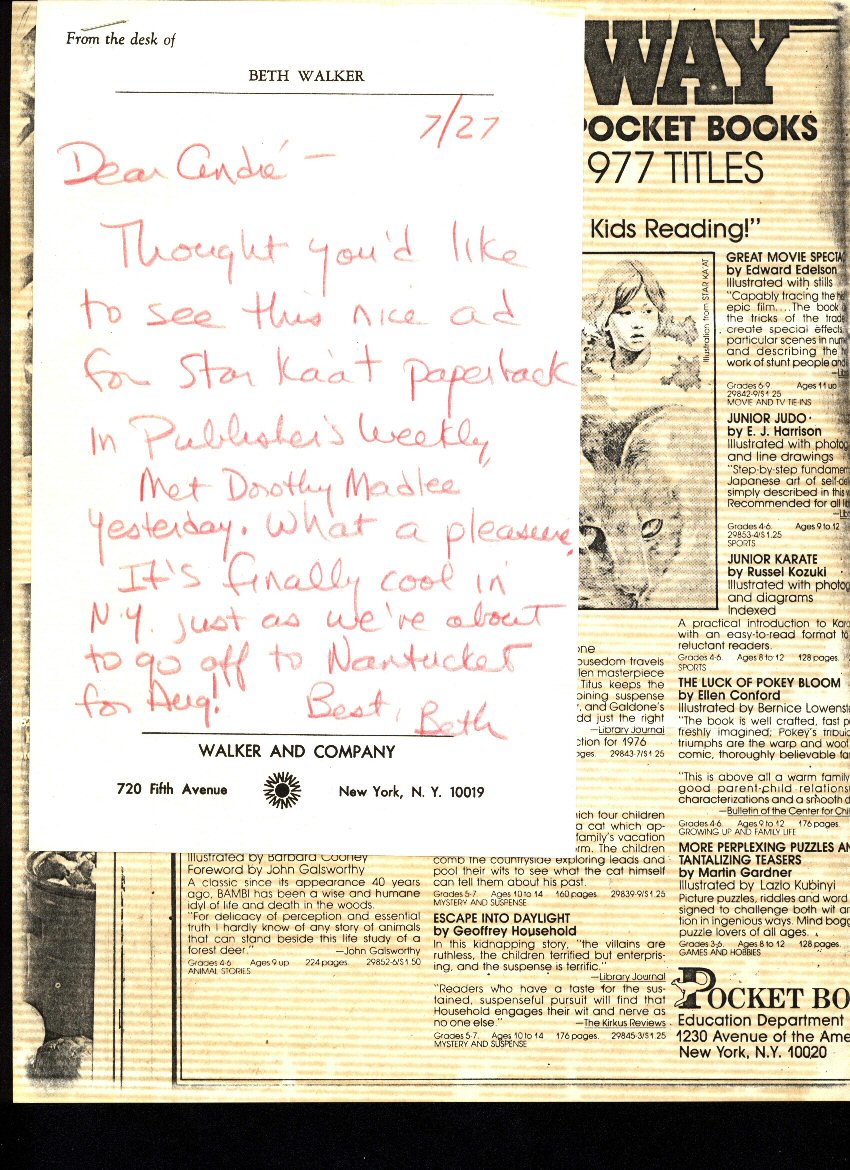 From the desk of
BETH WALKER
7/27
Dear André —
Thought you'd like
to see this nice ad
for Star Ka'at paperback
in Publisher's Weekly,
Met Dorothy Madlee
yesterday. What a pleasure.
It's finally cool in
N.Y. just as we're about
to go off to Nantucket
for Aug!
Best, Beth
WALKER AND COMPANY
720 Fifth Avenue
New York, N. Y. 10019
WAY
POCKET BOOKS
977 TITLES
Kids Reading!"
Illustration from STAR KA'AT
GREAT MOVIE SPECTA
by Edward Edelson
Illustrated with stills
"Capably tracing the
epic film....The book
the tricks of the trade
create special effects
particular scenes in
and describing the
work of stunt people and
Grades 6-9 Ages 11 up
29842-9/$1.25
MOVIE AND TV TIE-INS
JUNIOR JUDO
by E. J. Harrison
Illustrated with photog
and line drawings
"Step-by-step fundamen
Japanese art of self-de
simply described in this
Recommended for all
Grades 4-6. Ages 9 to 12
29853-4/$1.25
SPORTS
JUNIOR KARATE
by Russel Kozuki
Illustrated with photog
and diagrams
Indexed
A practical introduction to Kara
with an easy-to-read format to
reluctant readers.
Grades 4-6. Ages 8 to 12 128 pages.
SPORTS
THE LUCK OF POKEY BLOOM
by Ellen Conford
Illustrated by Bernice Lowenste
"The book is well crafted, fast p
freshly imagined; Pokey's tribul
triumphs are the warp and woof
comic, thoroughly believable fa
"This is above all a warm family
good parent-child relations
characterizations and a smooth d
—Bulletin of the Center for Chi
Grades 4-6. Ages 9 to 12 176 pages.
GROWING UP AND FAMILY LIFE
MORE PERPLEXING PUZZLES AN
TANTALIZING TEASERS
by Martin Gardner
Illustrated by Lazlo Kubinyi
Picture puzzles, riddles and word
signed to challenge both wit an
tion in ingenious ways. Mind bogg
puzzle lovers of all ages.
Grades 3-6. Ages 8 to 12 128 pages.
GAMES AND HOBBIES
POCKET BO
Education Department
1230 Avenue of the Ame
New York, N.Y. 10020
one
ousedom travels
len masterpiece
Titus keeps the
bining suspense
, and Galdone's
dd just the right
—Library Journal
ction for 1976
ages. 29843-7/$1.25
ich four children
a cat which ap-
family's vacation
rm. The children
comb the countryside exploring leads and
pool their wits to see what the cat himself
can tell them about his past.
Grades 5-7. Ages 10 to 14 160 pages 29839-9/$1.25
MYSTERY AND SUSPENSE
ESCAPE INTO DAYLIGHT
by Geoffrey Household
In this kidnapping story, "the villains are
ruthless, the children terrified but enterpris-
ing, and the suspense is terrific."
—Library Journal
"Readers who have a taste for the sus-
tained, suspenseful pursuit will find that
Household engages their wit and nerve as
no one else."
—The Kirkus Reviews
Grades 5-7. Ages 10 to 14 176 pages. 29845-3/$1.25
MYSTERY AND SUSPENSE
Illustrated by Barbara Cooney
Foreword by John Galsworthy
A classic since its appearance 40 years
ago, BAMBI has been a wise and humane
idyl of life and death in the woods.
"For delicacy of perception and essential
truth I hardly know of any story of animals
that can stand beside this life study of a
forest deer."
—John Galsworthy
Grades 4-6 Ages 9 up 224 pages. 29852-6/$1.50
ANIMAL STORIES